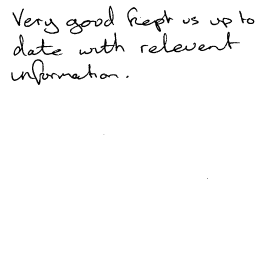 Very good kept us up to
date with relevent
information.